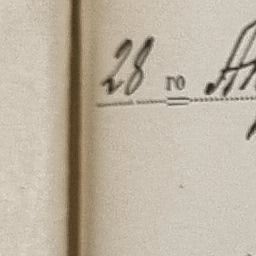 28 го